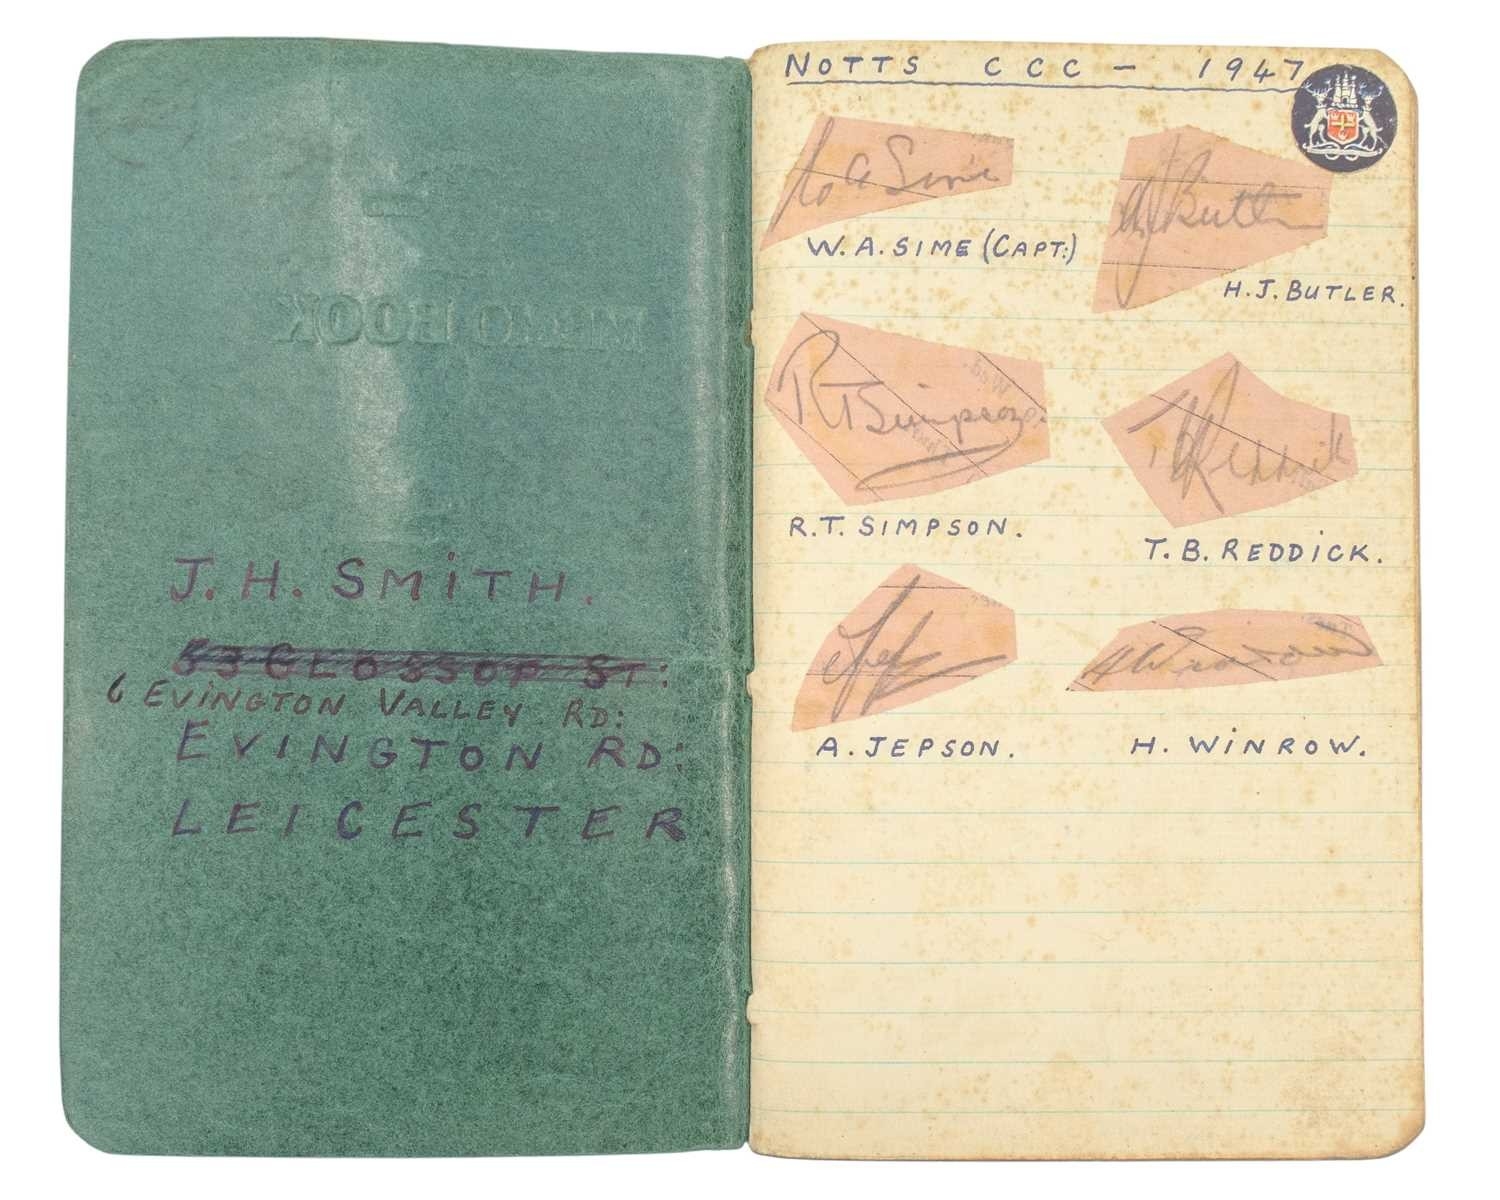 MEMO BOOK
J. H. SMITH.
53 GLOSSOP ST:
6 EVINGTON VALLEY RD:
EVINGTON RD:
LEICESTER
NOTTS CCC - 1947
W A Sime
H J Butler
W. A. SIME (CAPT:)
H. J. BUTLER.
R T Simpson.
T B Reddick
R. T. SIMPSON.
T. B. REDDICK.
H Winrow
A. JEPSON.
H. WINROW.